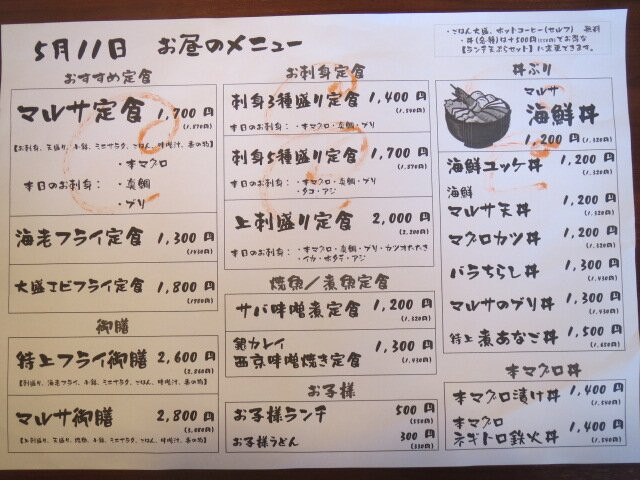 5月11日 お昼のメニュー
・ごはん大盛、ホットコーヒー(セルフ) 無料
・丼(各種)は+500円(550円)でお得な
【ランチ天ぷらセット】に変更できます。
おすすめ定食
マルサ定食 1,700円
(1.870円)
【お刺身、天盛り、小鉢、ミニサラダ、ごはん、味噌汁、香の物】
本日のお刺身:
・本マグロ
・真鯛
・ブリ
海老フライ定食 1,300円
(1430円)
大盛エビフライ定食 1,800円
(1980円)
御膳
特上フライ御膳 2,600円
(2.860円)
マルサ御膳 2,800円
(3.080円)
お刺身定食
刺身3種盛り定食 1,400円
(1.540円)
本日のお刺身:・本マグロ・真鯛・ブリ
刺身5種盛り定食 1,700円
(1.870円)
本日のお刺身:・本マグロ・真鯛・ブリ
・タコ・アジ
上刺盛り定食 2,000円
(2.200円)
本日のお刺身:・本マグロ・真鯛・ブリ・カツオたたき
・イカ・ホタテ・アジ
焼魚/煮魚定食
サバ味噌煮定食 1,200円
(1.320円)
銀カレイ
西京味噌焼き定食 1,300円
(1.430円)
お子様
お子様ランチ 500円
(550円)
お子様うどん 300円
(330円)
丼ぶり
マルサ
海鮮丼
1,200円 (1.320円)
海鮮ユッケ丼 1,200円
(1.320円)
海鮮
マルサ天丼 1,200円
(1.320円)
マグロカツ丼 1,200円
(1.320円)
バラちらし丼 1,300円
(1.430円)
マルサのブリ丼 1,300円
(1.430円)
特上 煮あなご丼 1,500円
(1.650円)
本マグロ丼
本マグロ漬け丼 1,400円
(1.540円)
本マグロ
ネギトロ鉄火丼 1,400円
(1.540円)